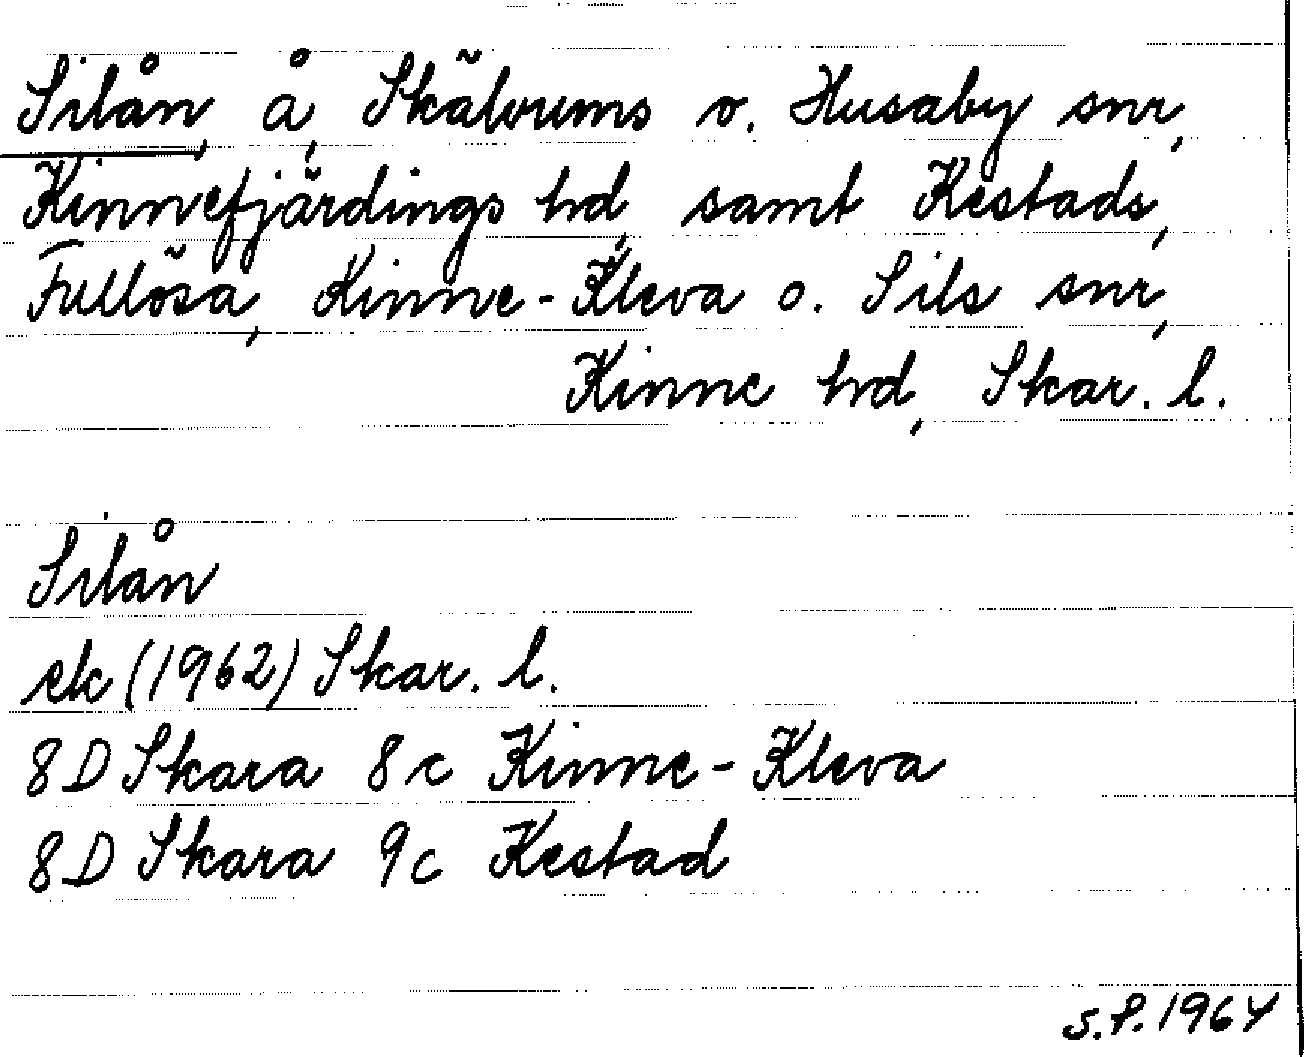 Silån, å, Skälvums o. Husaby snr,
Kinnefjärdings hd, samt Kestads,
Fullösa, Kinne-Kleva o. Sils snr,
Kinne hd, Skar. l.
Silån
ek (1962) Skar. l.
8D Skara 8c Kinne-Kleva
8D Skara 9c Kestad
S.P. 1964